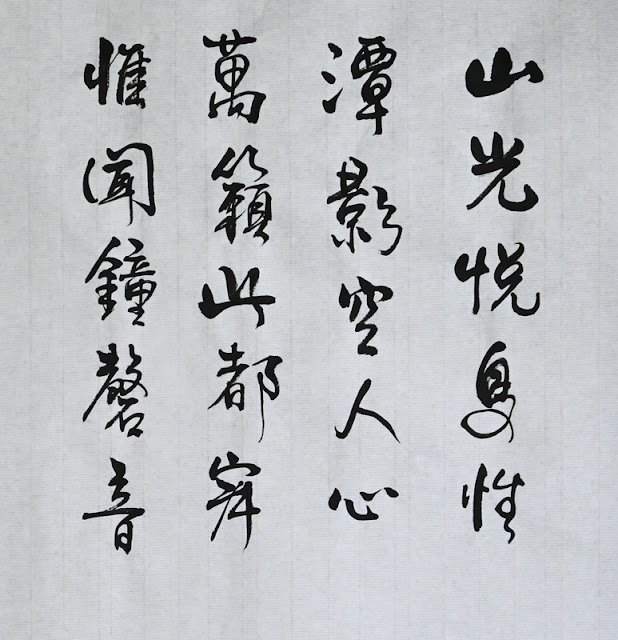 山光悦鳥性
潭影空人心
萬籟此都寂
惟聞鐘磬音